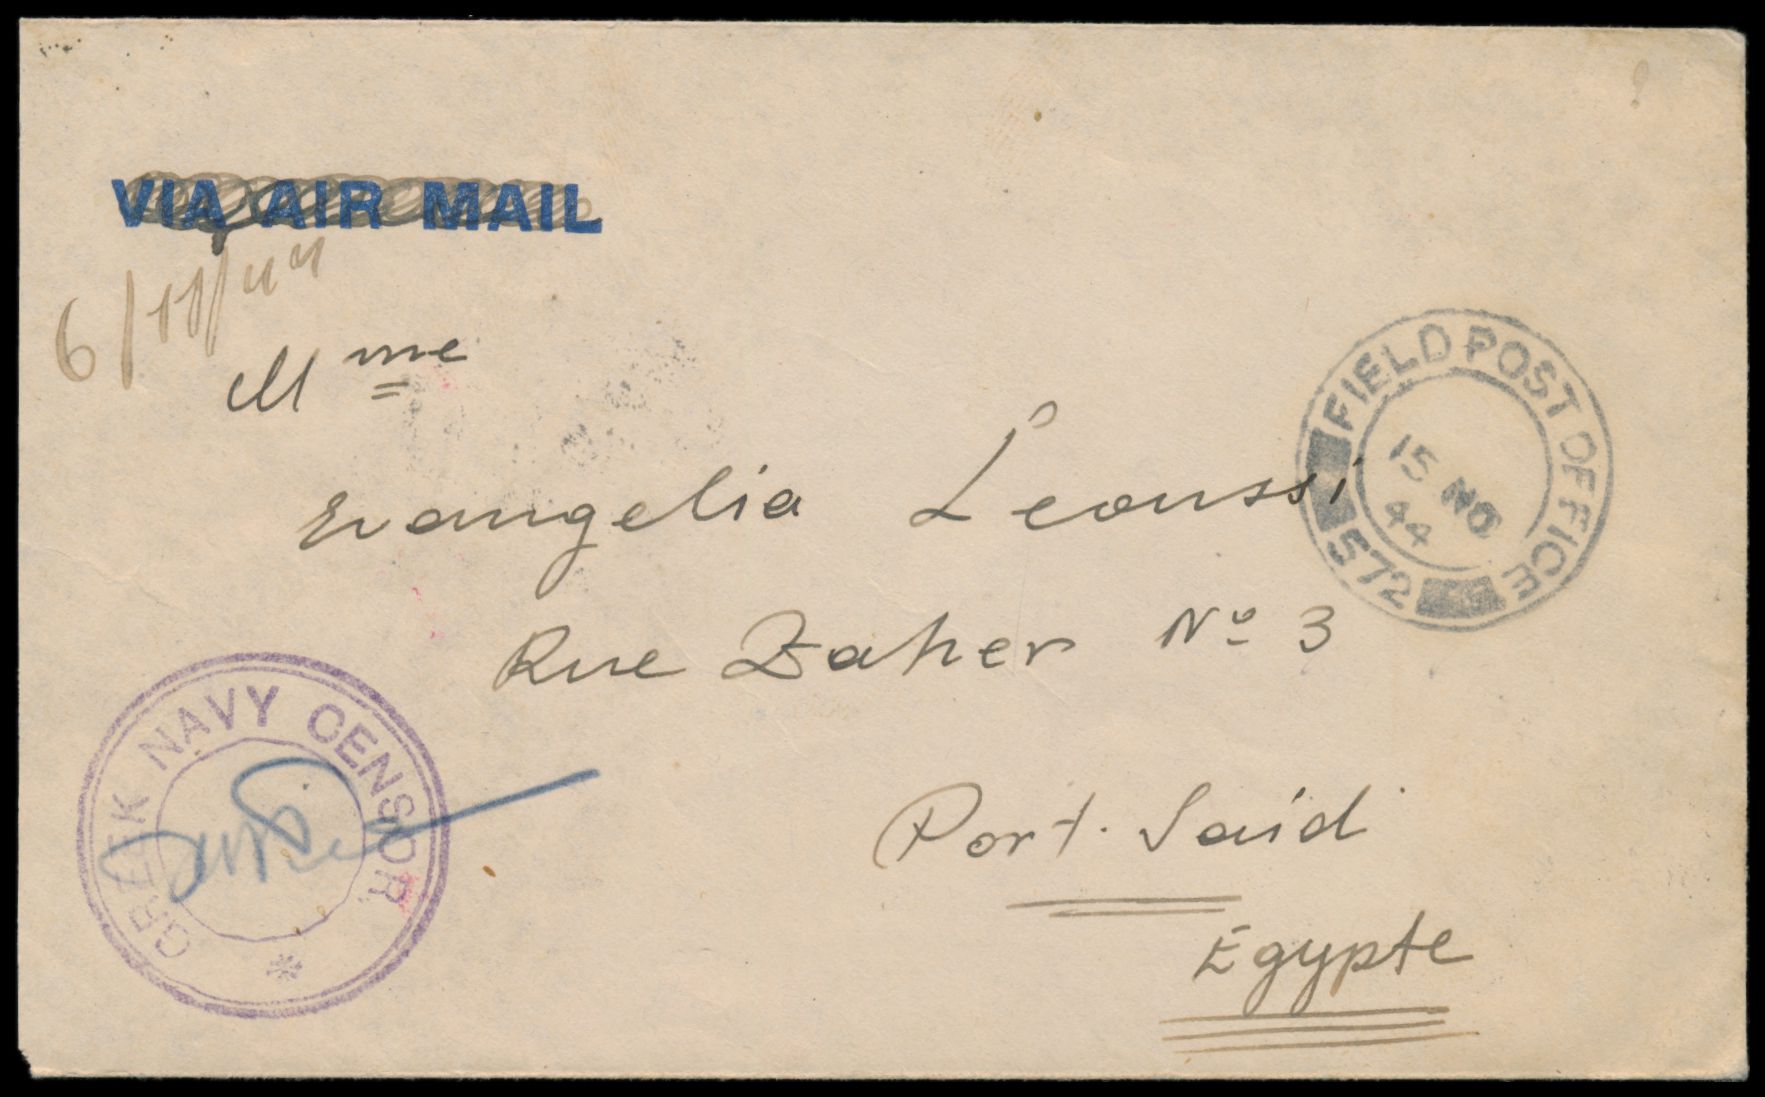 VIA AIR MAIL
6/11/44
Mme
Evangelia Leoussi
Rue Zaher Nº 3
Port-Said
Egypte
FIELD POST OFFICE
572
15 NO
44
GREEK NAVY CENSOR